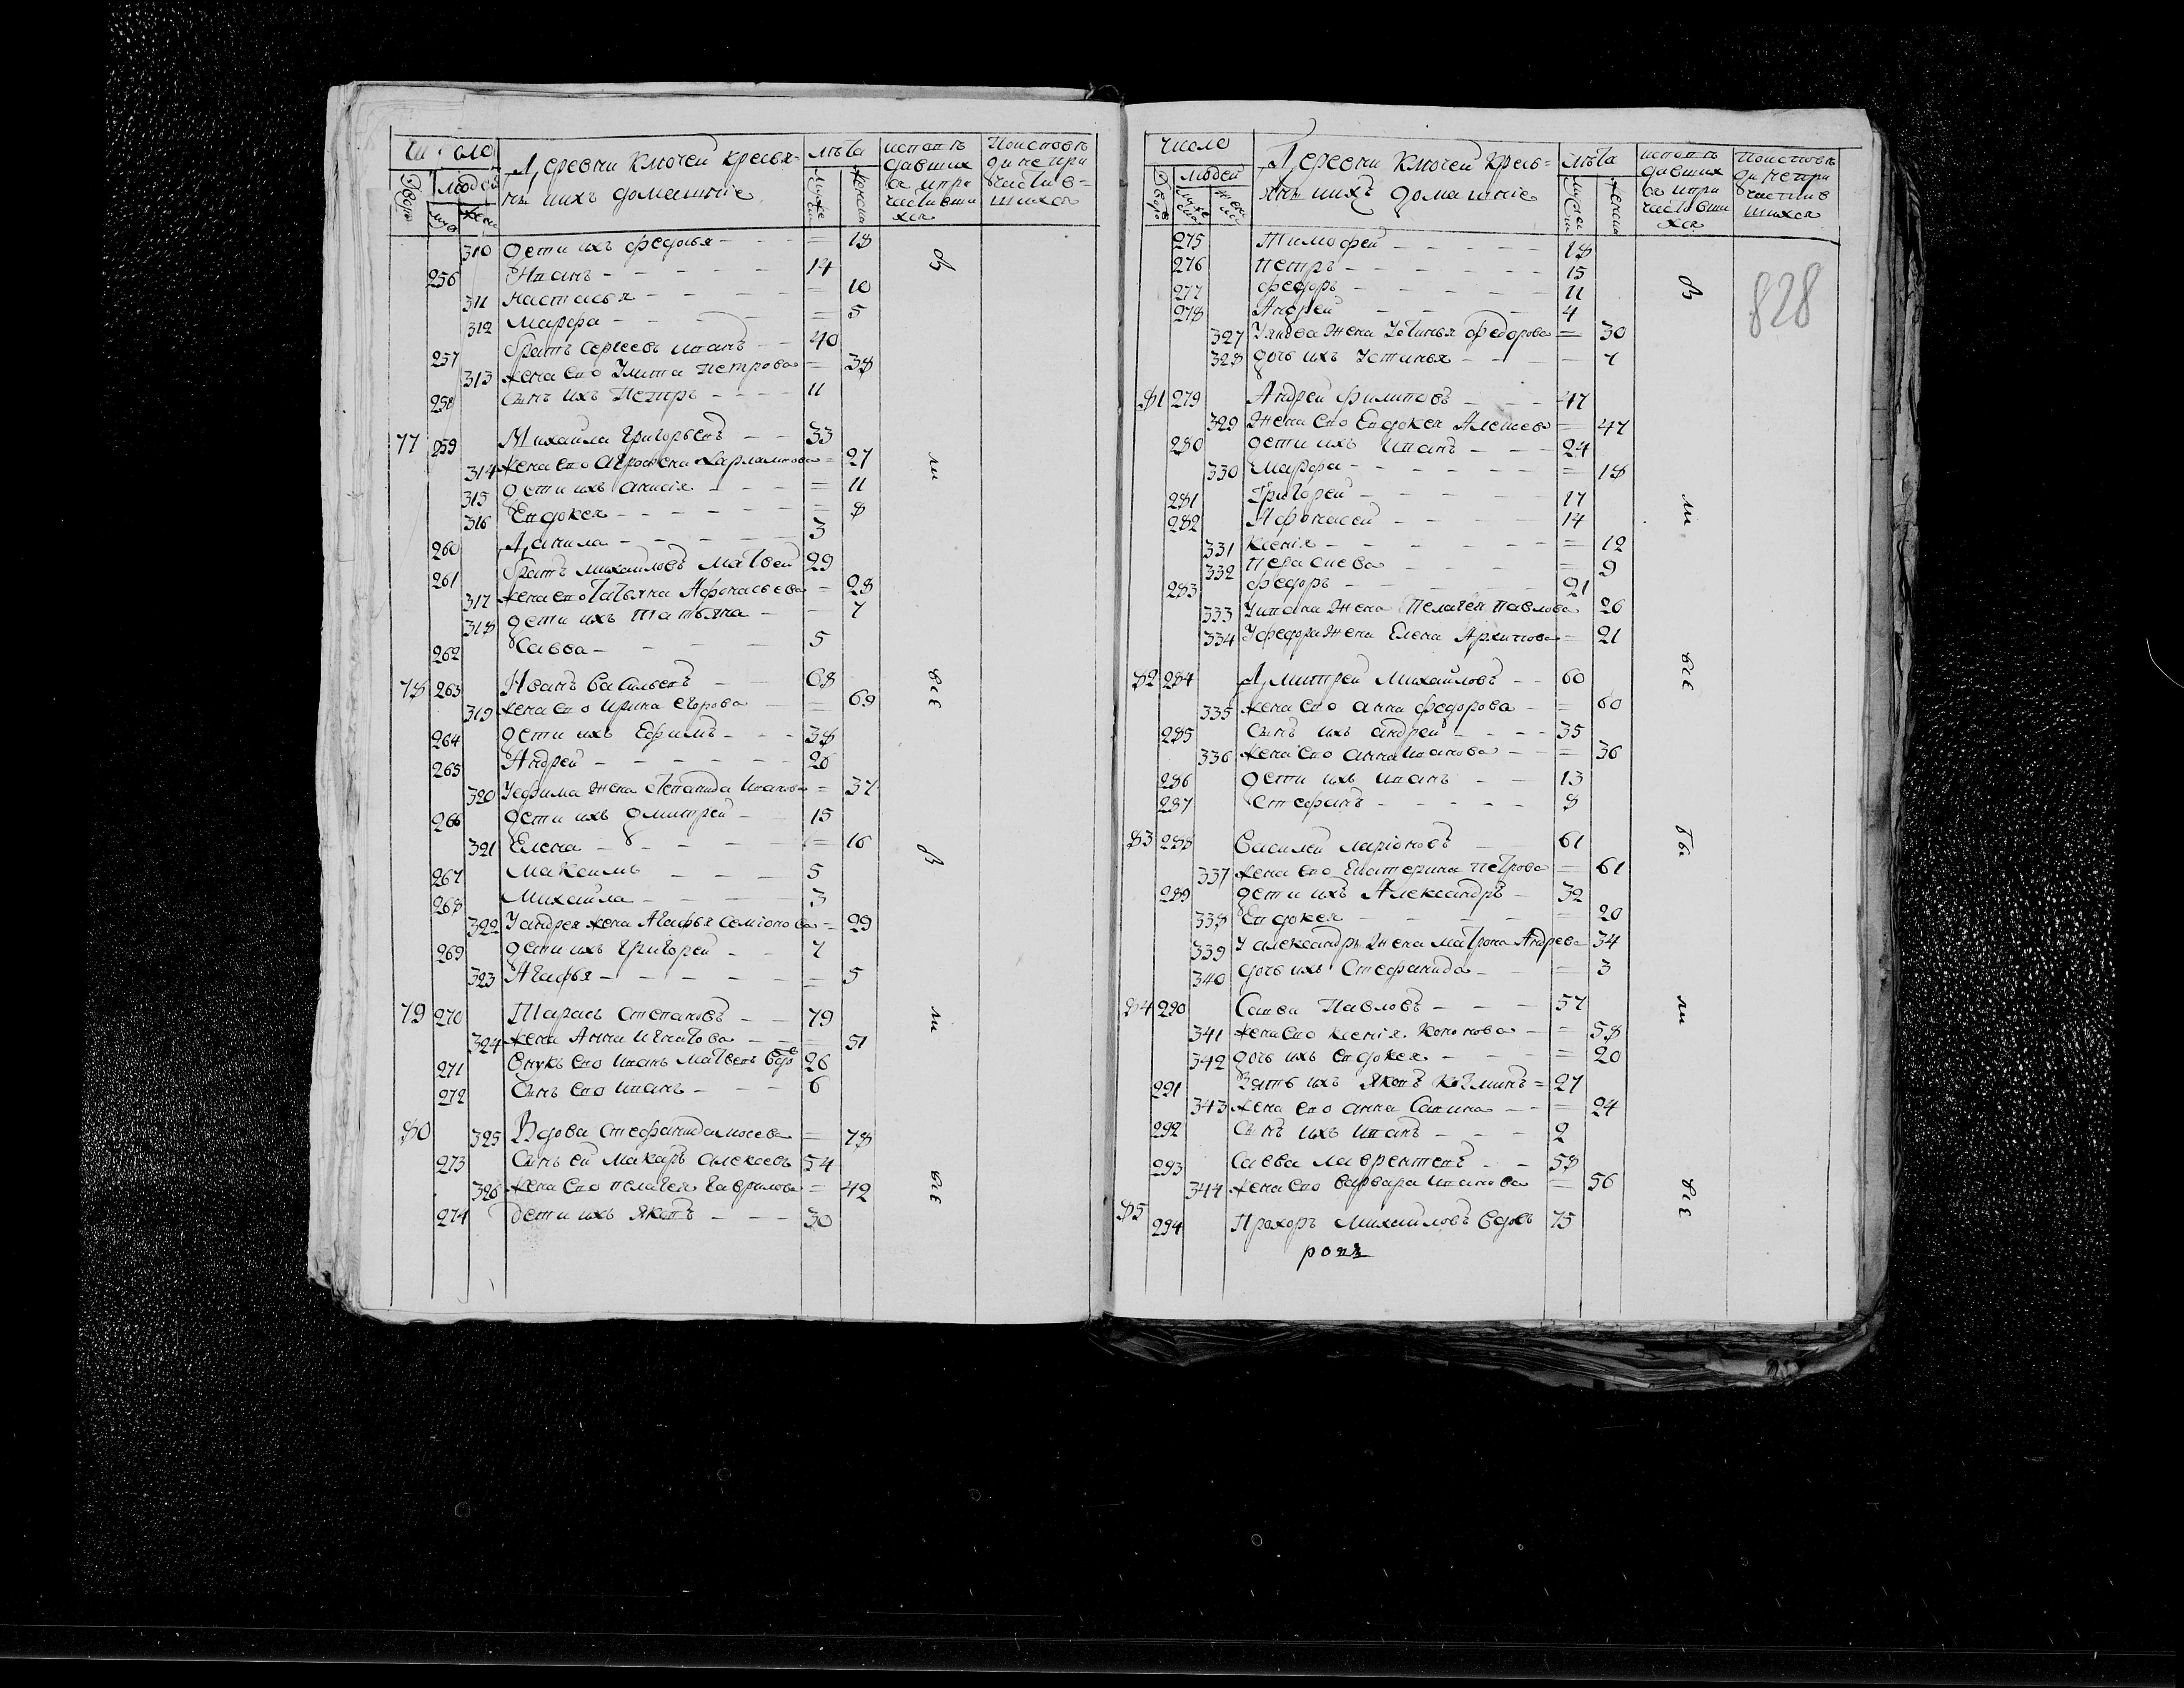 Число
Двор
людей
муж
жен
Деревни Ключей крестья-
нъ и ихъ домашніе
лѣта
мужеск
женски
исповѣ
давших
ся и при
частивши
хся
По исповѣ
ди не при
частив=
шихся
310 дети ихъ федосья - - = 18
256 Иванъ - - - - - 14
311 настасья - - - = 10
312 Марфа - - - - = 5
257 братъ Сергеевъ иванъ - - 40
313 жена ево Улита Петрова = 38
258 сынъ ихъ Петръ - - - 11
77 259 Михайла Григорьевъ - - 33
314 жена ево агрофена Харлампова = 27
315 дети ихъ анисія - - - = 11
316 Евдокея - - - - - = 8
260 Данила - - - - 3
261 братъ михайловъ матвей 29
317 жена ево татьяна Афонасьева = 28
318 дети ихъ татьяна - - 7
262 Савва - - - - - 5
78 263 Иванъ Васильевъ - - 68
319 жена ево ирина егорова - = 69
264 дети ихъ Ефимъ - - - 38
265 Андрей - - - - - - 26
320 У ефима жена степанида Иванова = 37
266 дети ихъ дмитрей - - 15
321 Елена - - - - - = 16
267 Максимъ - - - 5
268 Михайла - - - - 3
322 У андрея жена Агафья семіонова = 29
269 дети ихъ григорей - - 7
323 Агафья - - - - - - = 5
79 270 Тарасъ Степановъ - - 79
324 жена Анна игнатова - = 51
271 внукъ ево иванъ матвевъ вдо 26
272 Сынъ ево иванъ - - - 6
80 325 Вдова Стефанида мосева = 78
273 Сынъ ей Макаръ алексевъ 54
326 жена ево пелагея гаврилова = 42
274 Дети ихъ яковъ - - - 30
в
ли
все
в
ли
все
число
Дворъ
людей
мужеска
женска
Деревни Ключей кресь=
янъ и ихъ домашніе
лѣта
мужески
женски
исповѣ
давших
ся и при
частивши
хся
По исповѣ
ди не при
частив
шихся
828
275 Тимофей - - - - - 18
276 петръ - - - - - - 15
277 федоръ - - - - - 11
278 Андрей - - - - - 4
327 У якова жена Устинья федорова = 30
328 дочь ихъ Устинья - - - - 7
81 279 Андрей филиповъ - - - 47
329 жена ево Евдокея Алексева = 47
280 дети ихъ Иванъ - - - 24
330 Марфа - - - - - - = 18
281 Григорей - - - - - 17
282 Афонасей - - - - 14
331 Ксенія - - - - - - = 12
332 Парасцева - - - - = 9
283 федоръ - - - - - 21
333 У ивана жена Пелагея павлова 26
334 У федора жена Елена Архипова = 21
82 284 Дмитрей Михайловъ - - 60
335 жена ево анна федорова - = 60
285 Сынъ ихъ андрей - - - - 35
336 жена ево анна Иванова - - = 36
286 дети ихъ иванъ - - 13
287 Стефанъ - - - - - 8
83 288 Василей ларіоновъ - 61
337 жена ево Екатерина петрова = 61
289 дети ихъ Александръ - 32
338 Евдокея - - - - - = 20
339 У александръ жена матрона Андрева 34
340 дочь ихъ Стефанида - - = 3
84 290 Савва Павловъ - - - 57
341 жена ево ксенія Кононова - = 58
342 дочь ихъ евдокея - - - - = 20
291 Зять ихъ яковъ козминъ = 27
343 жена ево анна Савина - - = 24
292 Сынъ ихъ иванъ - - - 2
293 Савва лаврентевъ - - 58
344 жена ево варвара иванова = 56
85 294 Прохоръ михайловъ вдов 75
в
ли
все
ты
ли
все